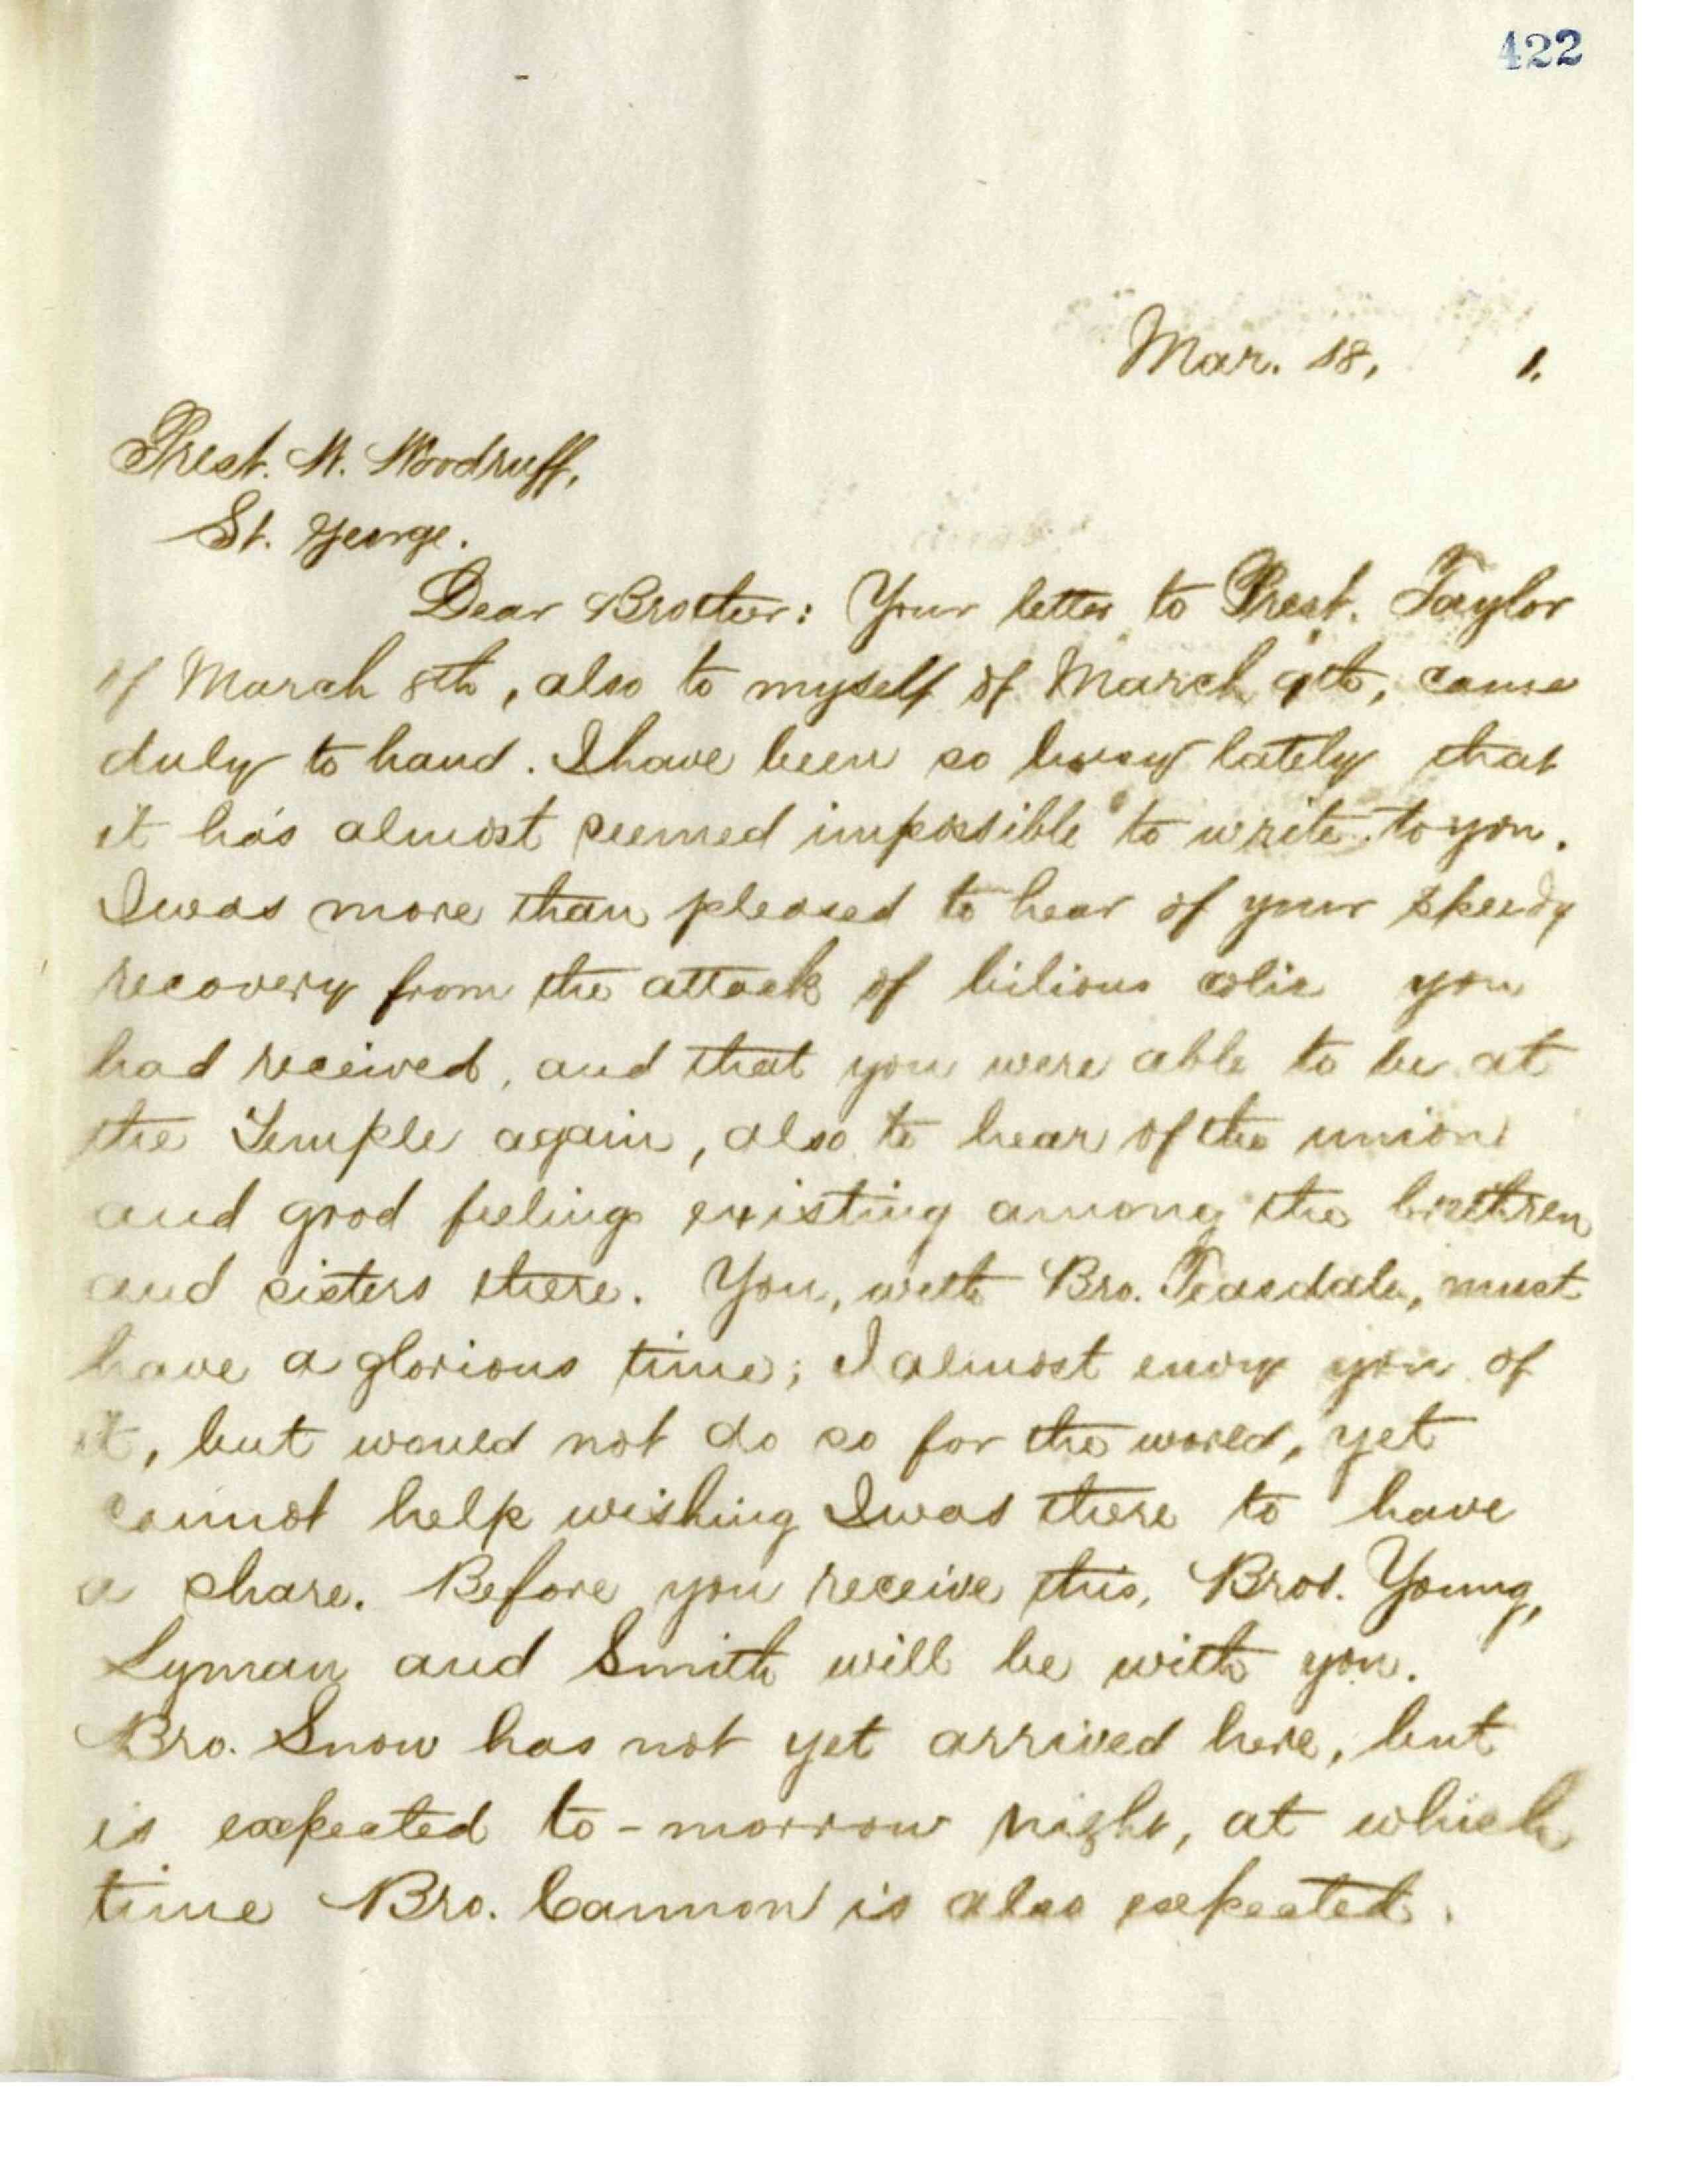 422
Mar. 18, 1.
Prest. W. Woodruff,
St. George.
Dear Brother: Your letter to Prest. Taylor
of March 8th, also to myself of March 9th, came
duly to hand. I have been so busy lately that
it has almost seemed impossible to write to you.
I was more than pleased to hear of your speedy
recovery from the attack of bilious colic you
had received, and that you were able to be at
the Temple again, also to hear of the union
and good feelings existing among the brethren
and sisters there. You, with Bro. Teasdale, must
have a glorious time; I almost envy you of
it, but would not do so for the world, yet
cannot help wishing I was there to have
a share. Before you receive this, Bros. Young,
Lyman and Smith will be with you.
Bro. Snow has not yet arrived here, but
is expected to-morrow night, at which
time Bro. Cannon is also expected.